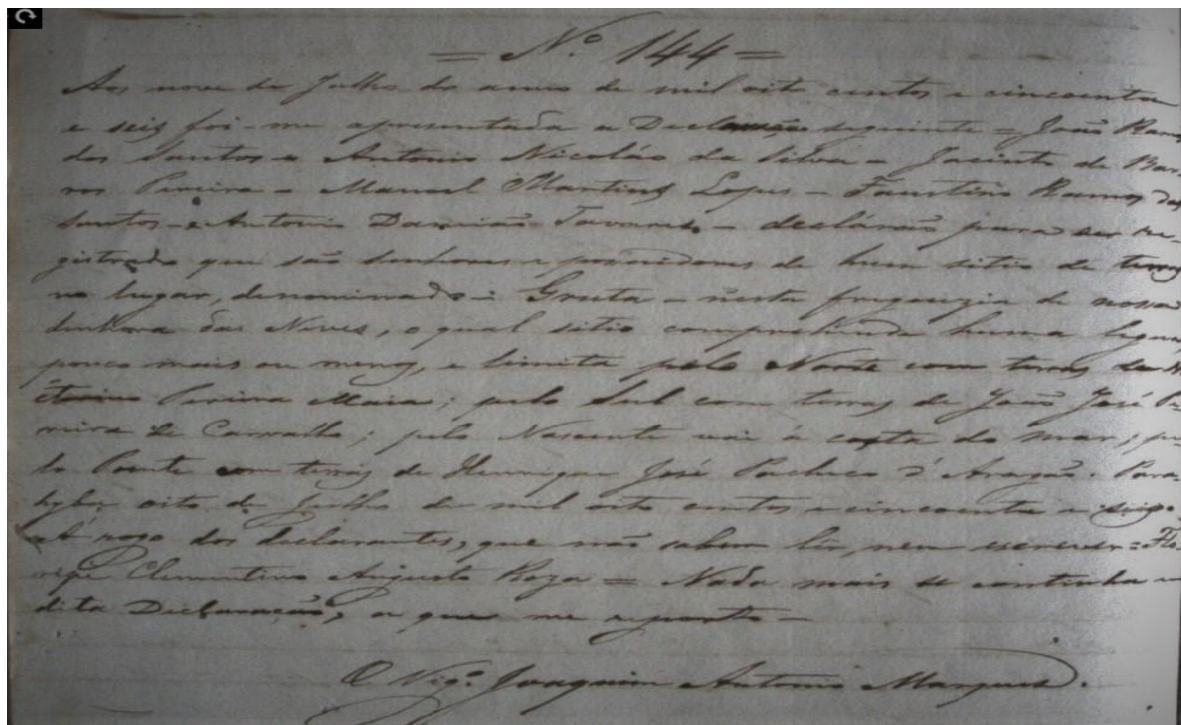 = Nº 144 =
Aos nove de Julho do anno de mil oito centos e cincoenta
e seis foi-me apresentada a Declaração seguinte = João Ramos
dos Santos - Antonio Nicoláo da Silva - Jacinto de Bar
ros Pereira - Manoel Martins Lopes - Faustino Ramos dos
Santos - e Antonio Damião Tavares - declárão para ser re-
gistrado que são senhores e possuidores de hum sitio de terras
no lugar, denominado - Gruta - nésta freguezia de nossa
Senhora das Neves, o qual sitio comprehende huma legua,
pouco mais ou menos, e limita pelo Norte com terras de
Pereira Maia; pelo Sul com terras de João José Pe-
reira de Carvalho; pelo Nascente vai á costa do mar; pe
lo Poente com terras de Henrique José Pacheco d'Aragão. Para-
hyba oito de Julho de mil oito centos e cincoenta e seis.
A' rogo dos declarantes, que não sabem ler, nem escrever = Flo-
ripe Clementino Augusto Roza = Nada mais se continha n
dita Declaração, a que me reporto -
O Vigº Joaquim Antonio Marques.